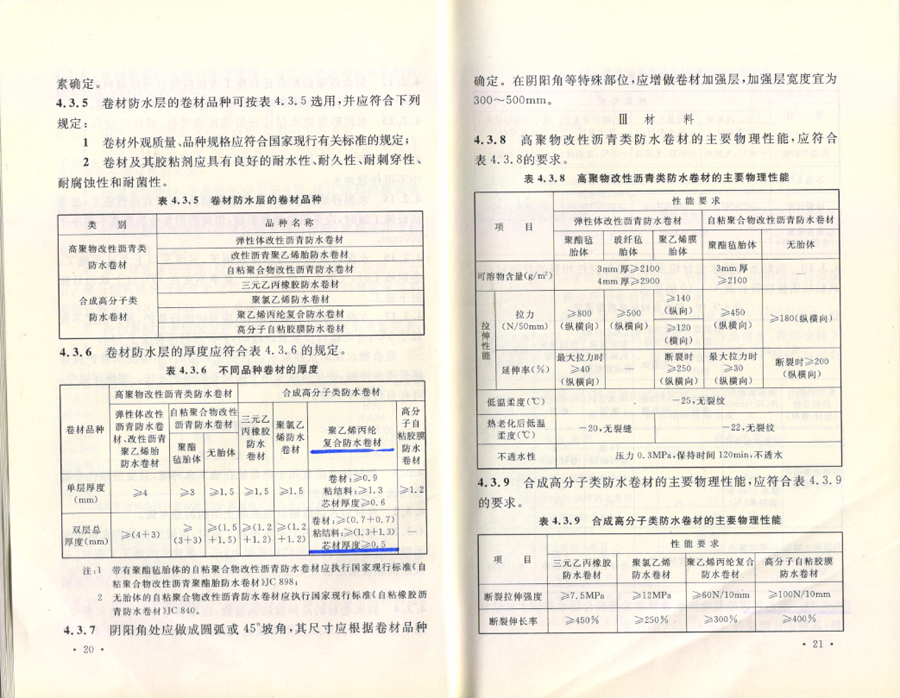 素确定。
4.3.5 卷材防水层的卷材品种可按表 4.3.5 选用,并应符合下列
规定:
1 卷材外观质量、品种规格应符合国家现行有关标准的规定;
2 卷材及其胶粘剂应具有良好的耐水性、耐久性、耐刺穿性、
耐腐蚀性和耐菌性。
表 4.3.5 卷材防水层的卷材品种
类 别 品 种 名 称
高聚物改性沥青类
防水卷材
弹性体改性沥青防水卷材
改性沥青聚乙烯胎防水卷材
自粘聚合物改性沥青防水卷材
合成高分子类
防水卷材
三元乙丙橡胶防水卷材
聚氯乙烯防水卷材
聚乙烯丙纶复合防水卷材
高分子自粘胶膜防水卷材
4.3.6 卷材防水层的厚度应符合表 4.3.6 的规定。
表 4.3.6 不同品种卷材的厚度
卷材品种
高聚物改性沥青类防水卷材 合成高分子类防水卷材
弹性体改性
沥青防水卷
材、改性沥青
聚乙烯胎
防水卷材
自粘聚合物改性
沥青防水卷材
聚酯
毡胎体
无胎体
三元乙
丙橡胶
防水
卷材
聚氯乙
烯防水
卷材
聚乙烯丙纶
复合防水卷材
高分
子自
粘胶膜
防水
卷材
单层厚度
(mm)
≥4 ≥3 ≥1.5 ≥1.5 ≥1.5
卷材:≥0.9
粘结料:≥1.3
芯材厚度≥0.6
≥1.2
双层总
厚度(mm)
≥(4+3)
≥
(3+3)
≥(1.5
+1.5)
≥(1.2
+1.2)
≥(1.2
+1.2)
卷材:≥(0.7+0.7)
粘结料:≥(1.3+1.3)
芯材厚度≥0.5
—
注:1 带有聚酯毡胎体的自粘聚合物改性沥青防水卷材应执行国家现行标准《自
粘聚合物改性沥青聚酯胎防水卷材》JC 898;
2 无胎体的自粘聚合物改性沥青防水卷材应执行国家现行标准《自粘橡胶沥
青防水卷材》JC 840。
4.3.7 阴阳角处应做成圆弧或 45°坡角,其尺寸应根据卷材品种
· 20 ·
确定。在阴阳角等特殊部位,应增做卷材加强层,加强层宽度宜为
300～500mm。
Ⅲ 材 料
4.3.8 高聚物改性沥青类防水卷材的主要物理性能,应符合
表 4.3.8的要求。
表 4.3.8 高聚物改性沥青类防水卷材的主要物理性能
项 目
性 能 要 求
弹性体改性沥青防水卷材 自粘聚合物改性沥青防水卷材
聚酯毡
胎体
玻纤毡
胎体
聚乙烯膜
胎体
聚酯毡胎体 无胎体
可溶物含量(g/m²)
3mm 厚≥2100
4mm 厚≥2900
3mm 厚
≥2100
—
拉伸性能
拉力
(N/50mm)
≥800
(纵横向)
≥500
(纵横向)
≥140
(纵向)
≥120
(横向)
≥450
(纵横向)
≥180(纵横向)
延伸率(%)
最大拉力时
≥40
(纵横向)
—
断裂时
≥250
(纵横向)
最大拉力时
≥30
(纵横向)
断裂时≥200
(纵横向)
低温柔度(℃) −25,无裂纹
热老化后低温
柔度(℃)
−20,无裂缝 −22,无裂纹
不透水性 压力 0.3MPa,保持时间 120min,不透水
4.3.9 合成高分子类防水卷材的主要物理性能,应符合表 4.3.9
的要求。
表 4.3.9 合成高分子类防水卷材的主要物理性能
项 目
性 能 要 求
三元乙丙橡胶
防水卷材
聚氯乙烯
防水卷材
聚乙烯丙纶复合
防水卷材
高分子自粘胶膜
防水卷材
断裂拉伸强度 ≥7.5MPa ≥12MPa ≥60N/10mm ≥100N/10mm
断裂伸长率 ≥450% ≥250% ≥300% ≥400%
· 21 ·